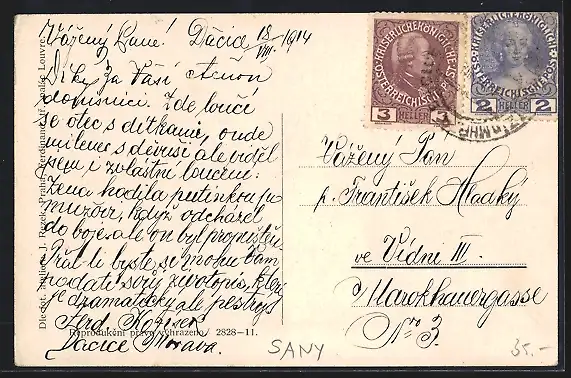 Vážený Pane! Dačice, 18/VIII. 1914
Díky za Vaší
domisnici. Zde loučí
se otec s dítkami, onde
milenec s děvuší ale viděl
jsem i zvláštní loučení:
Žena hodila putinkou po
mužovi, když odcházel
do boje, ale on byl propuštěn.
Přál-li byste si mohu Vám
podati svůj životopis, který
je dramatický ale pestrý.
Ferd.
Dačice Morava.
Reprodukční právo vyhrazeno. 2828-11.
KAISERLICHE KÖNIGLICHE
ÖSTERREICHISCHE POST
3 HELLER 3
KAISERLICHE KÖNIGLICHE
ÖSTERREICHISCHE POST
2 HELLER 2
Vážený Pán
p. František Hladký
ve Vídni III.
Marokkanergasse
Nro 3.
SANY
35.-